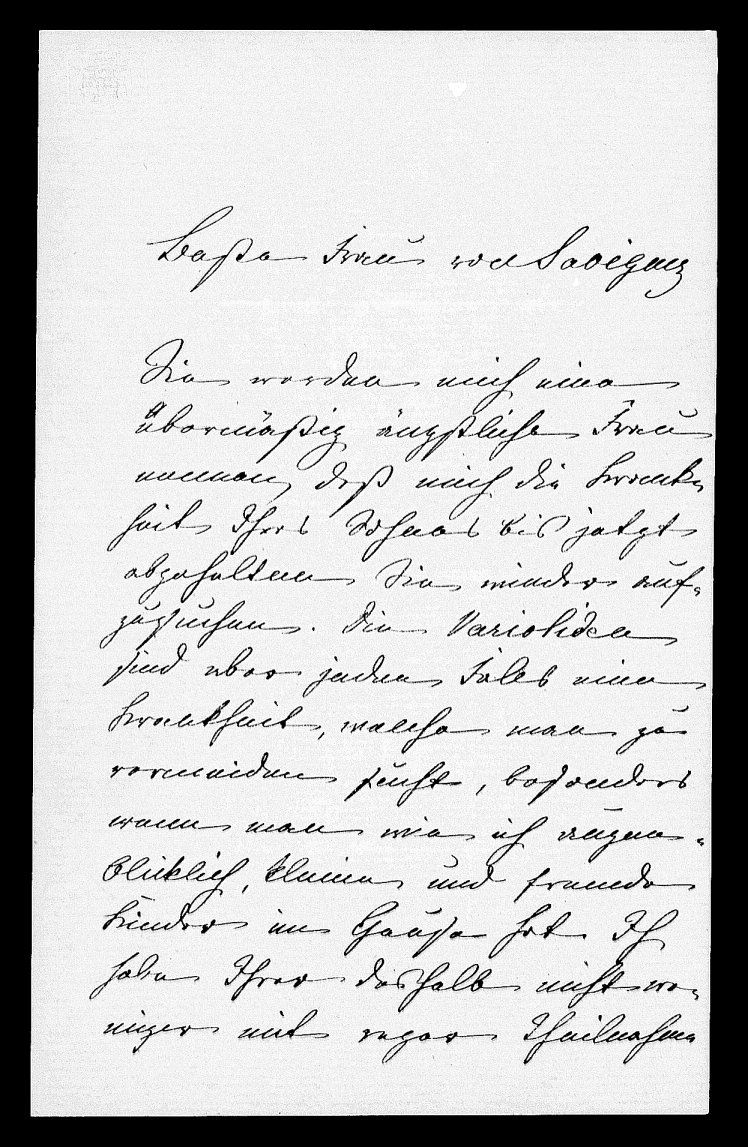 Beste Frau von Savigny
Sie werden mich eine
übermäßig ängstliche Frau
nennen, daß mich die Krank-
heit Ihres Sohnes bis jetzt
abgehalten Sie wieder auf-
zusuchen. Die Varioliden
sind aber jeden Falls eine
Krankheit, welche man zu
vermeiden sucht, besonders
wenn man wie ich augen-
blicklich, kleine und fremde
Kinder im Hause hat. Ich
habe Ihrer deshalb nicht we-
niger mit reger Theilnahme